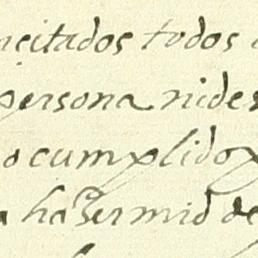 citados todos
persona nides
o cumplido
mid de